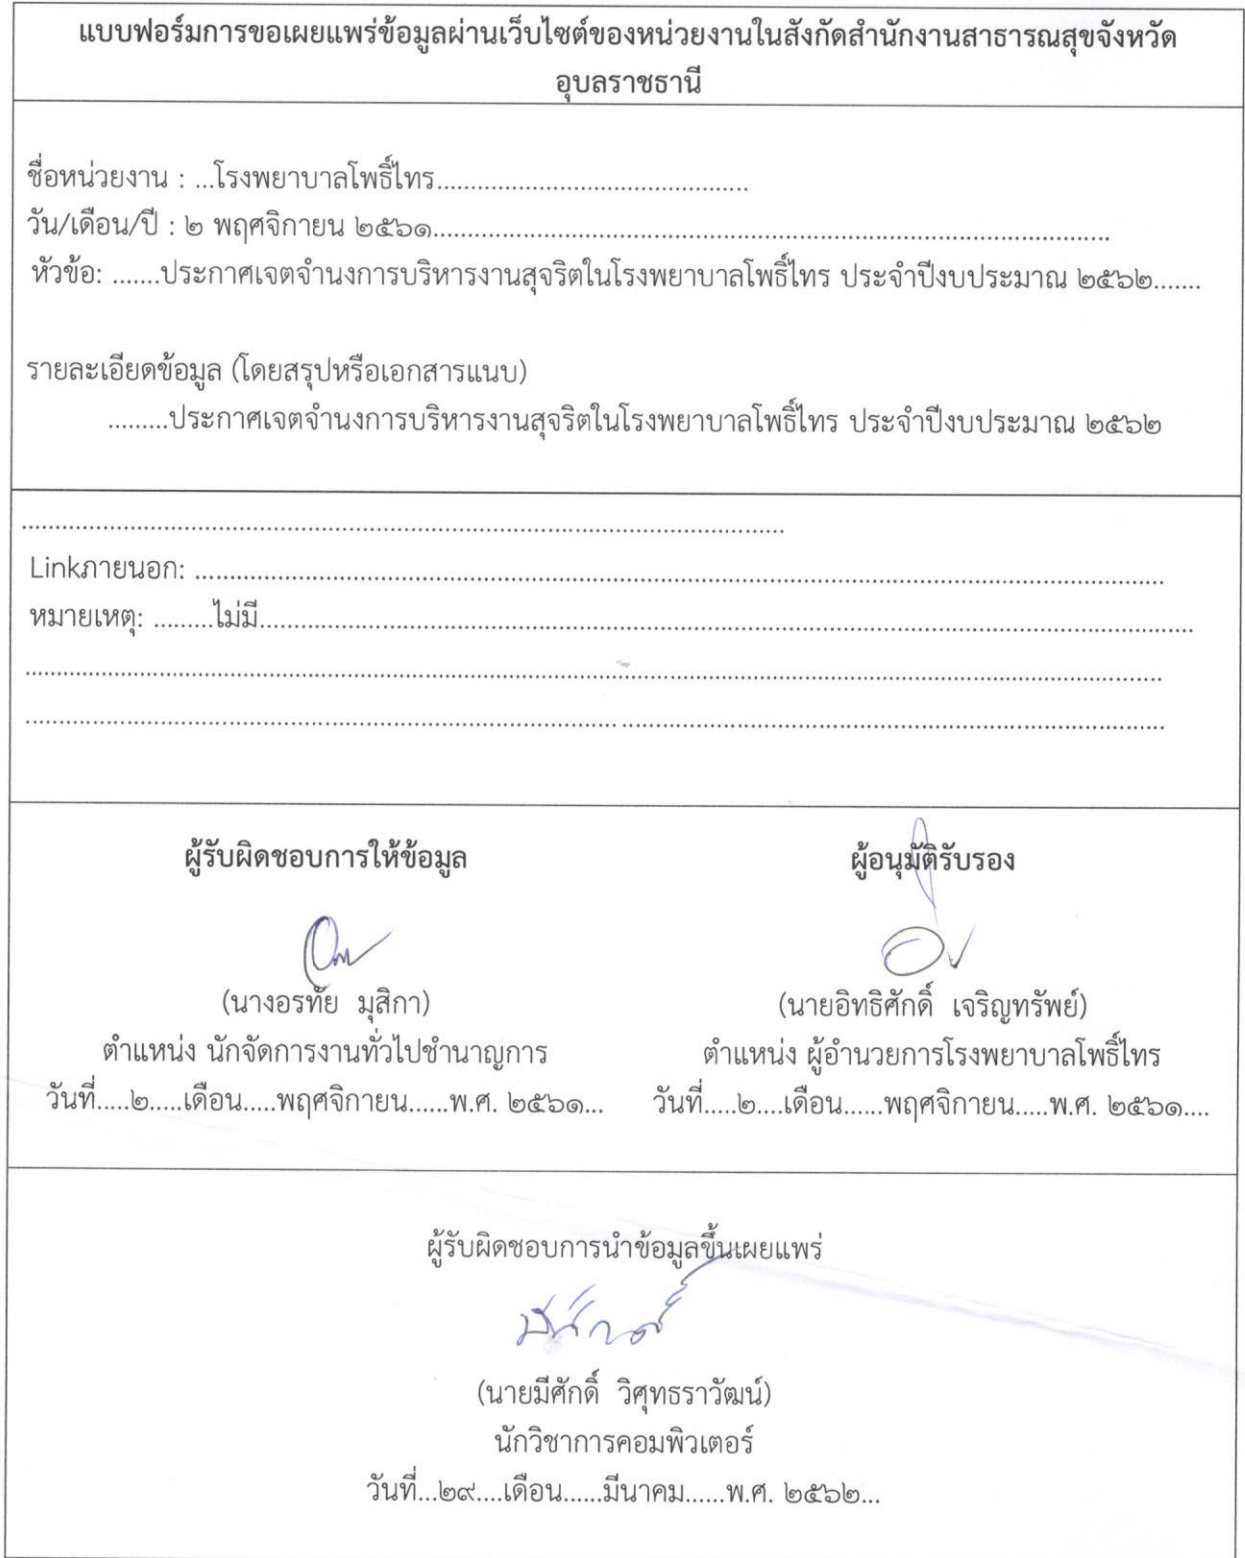 แบบฟอร์มการขอเผยแพร่ข้อมูลผ่านเว็บไซต์ของหน่วยงานในสังกัดสำนักงานสาธารณสุขจังหวัด
อุบลราชธานี
ชื่อหน่วยงาน : ...โรงพยาบาลโพธิ์ไทร..............................................
วัน/เดือน/ปี : ๒ พฤศจิกายน ๒๕๖๑....................................................................................................
หัวข้อ: .......ประกาศเจตจำนงการบริหารงานสุจริตในโรงพยาบาลโพธิ์ไทร ประจำปีงบประมาณ ๒๕๖๒.......
รายละเอียดข้อมูล (โดยสรุปหรือเอกสารแนบ)
.........ประกาศเจตจำนงการบริหารงานสุจริตในโรงพยาบาลโพธิ์ไทร ประจำปีงบประมาณ ๒๕๖๒
Linkภายนอก: ..............................................................................................................................
หมายเหตุ: .........ไม่มี..............................................................................................................................
ผู้รับผิดชอบการให้ข้อมูล ผู้อนุมัติรับรอง
(นางอรทัย มุสิกา) (นายอิทธิศักดิ์ เจริญทรัพย์)
ตำแหน่ง นักจัดการงานทั่วไปชำนาญการ ตำแหน่ง ผู้อำนวยการโรงพยาบาลโพธิ์ไทร
วันที่.....๒.....เดือน.....พฤศจิกายน......พ.ศ. ๒๕๖๑... วันที่.....๒....เดือน......พฤศจิกายน.....พ.ศ. ๒๕๖๑....
ผู้รับผิดชอบการนำข้อมูลขึ้นเผยแพร่
(นายมีศักดิ์ วิศุทธราวัฒน์)
นักวิชาการคอมพิวเตอร์
วันที่...๒๙....เดือน......มีนาคม......พ.ศ. ๒๕๖๒...